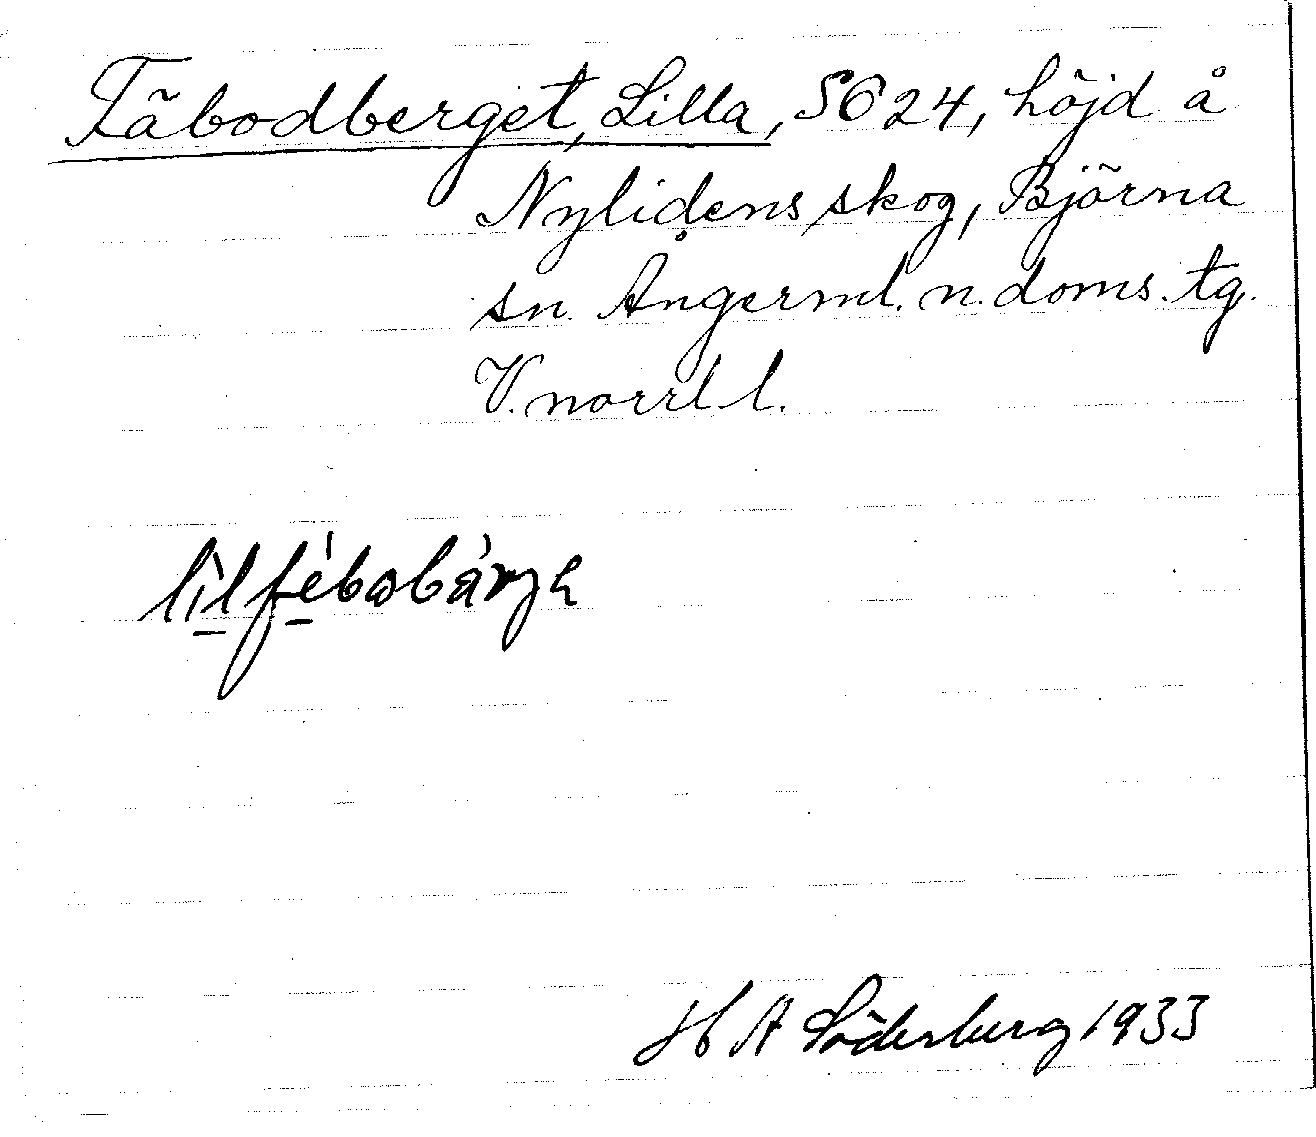 Fäbodberget, Lilla, SO 24, höjd å
Nylidens skog, Björna
sn. Ångerml. n. doms. tg.
V. norrl l.
lìlfèbobárjɂ
H A Söderberg 1933